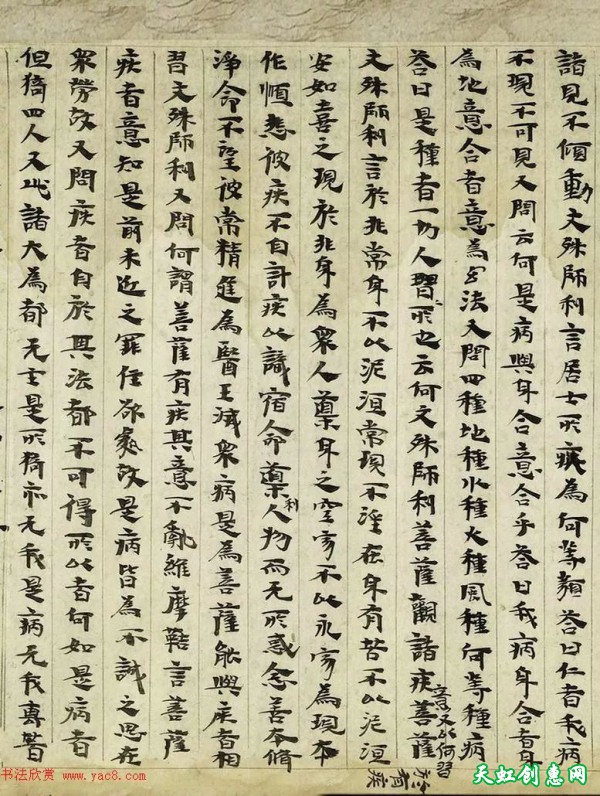 諸見不傾動文殊師利言居士所疾為何等類答曰仁者我病
不現不可見又問云何是病與身合意合乎答曰我病身合者身
為地意合者意為幻法又問四種地種水種火種風種何等種病
答曰是種者一切人習所也云何文殊師利菩薩觀諸疾菩薩
意又以何習
於有疾
文殊師利言於非常身不以泥洹常現不婬在身有苦不以泥洹
安如喜之現於非身為衆人導身之空寂不以永寂為現本
作恒悉彼疾不自計疾以識宿命導利人物而无所惑念善本脩
淨命不望彼常精進為醫王滅衆病是為菩薩能與疾者相
習文殊師利又問何謂菩薩有疾其意不亂維摩詰言菩薩
疾者意知是前未近之罪住欲處故是病皆為不誠之思在
衆勞故又問疾者自於其法都不可得所以者何如是病者
但猗四人又此諸大為都无主是所猗亦无我是病无我專著
书法欣赏 www.yac8.com
天虹创惠网